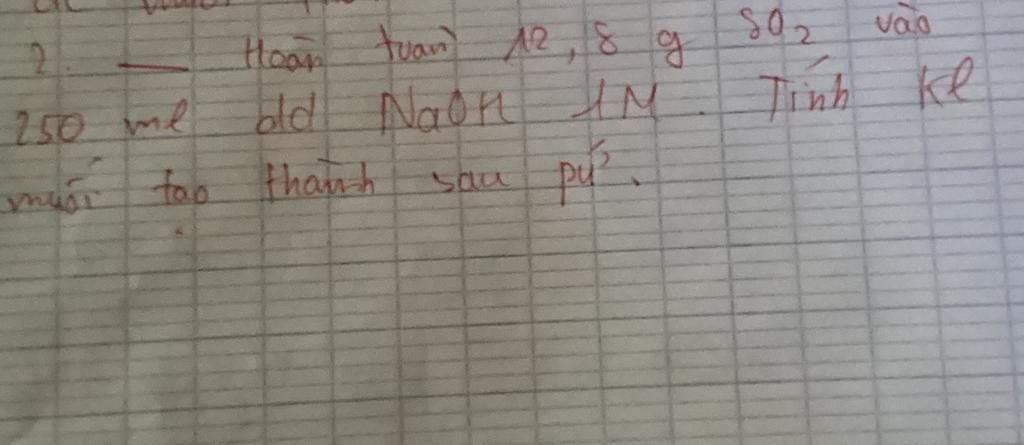 2. — Hoàn toàn 12,8 g SO2 vào
250 ml dd NaOH 1M. Tính kl
muối tạo thành sau pứ.